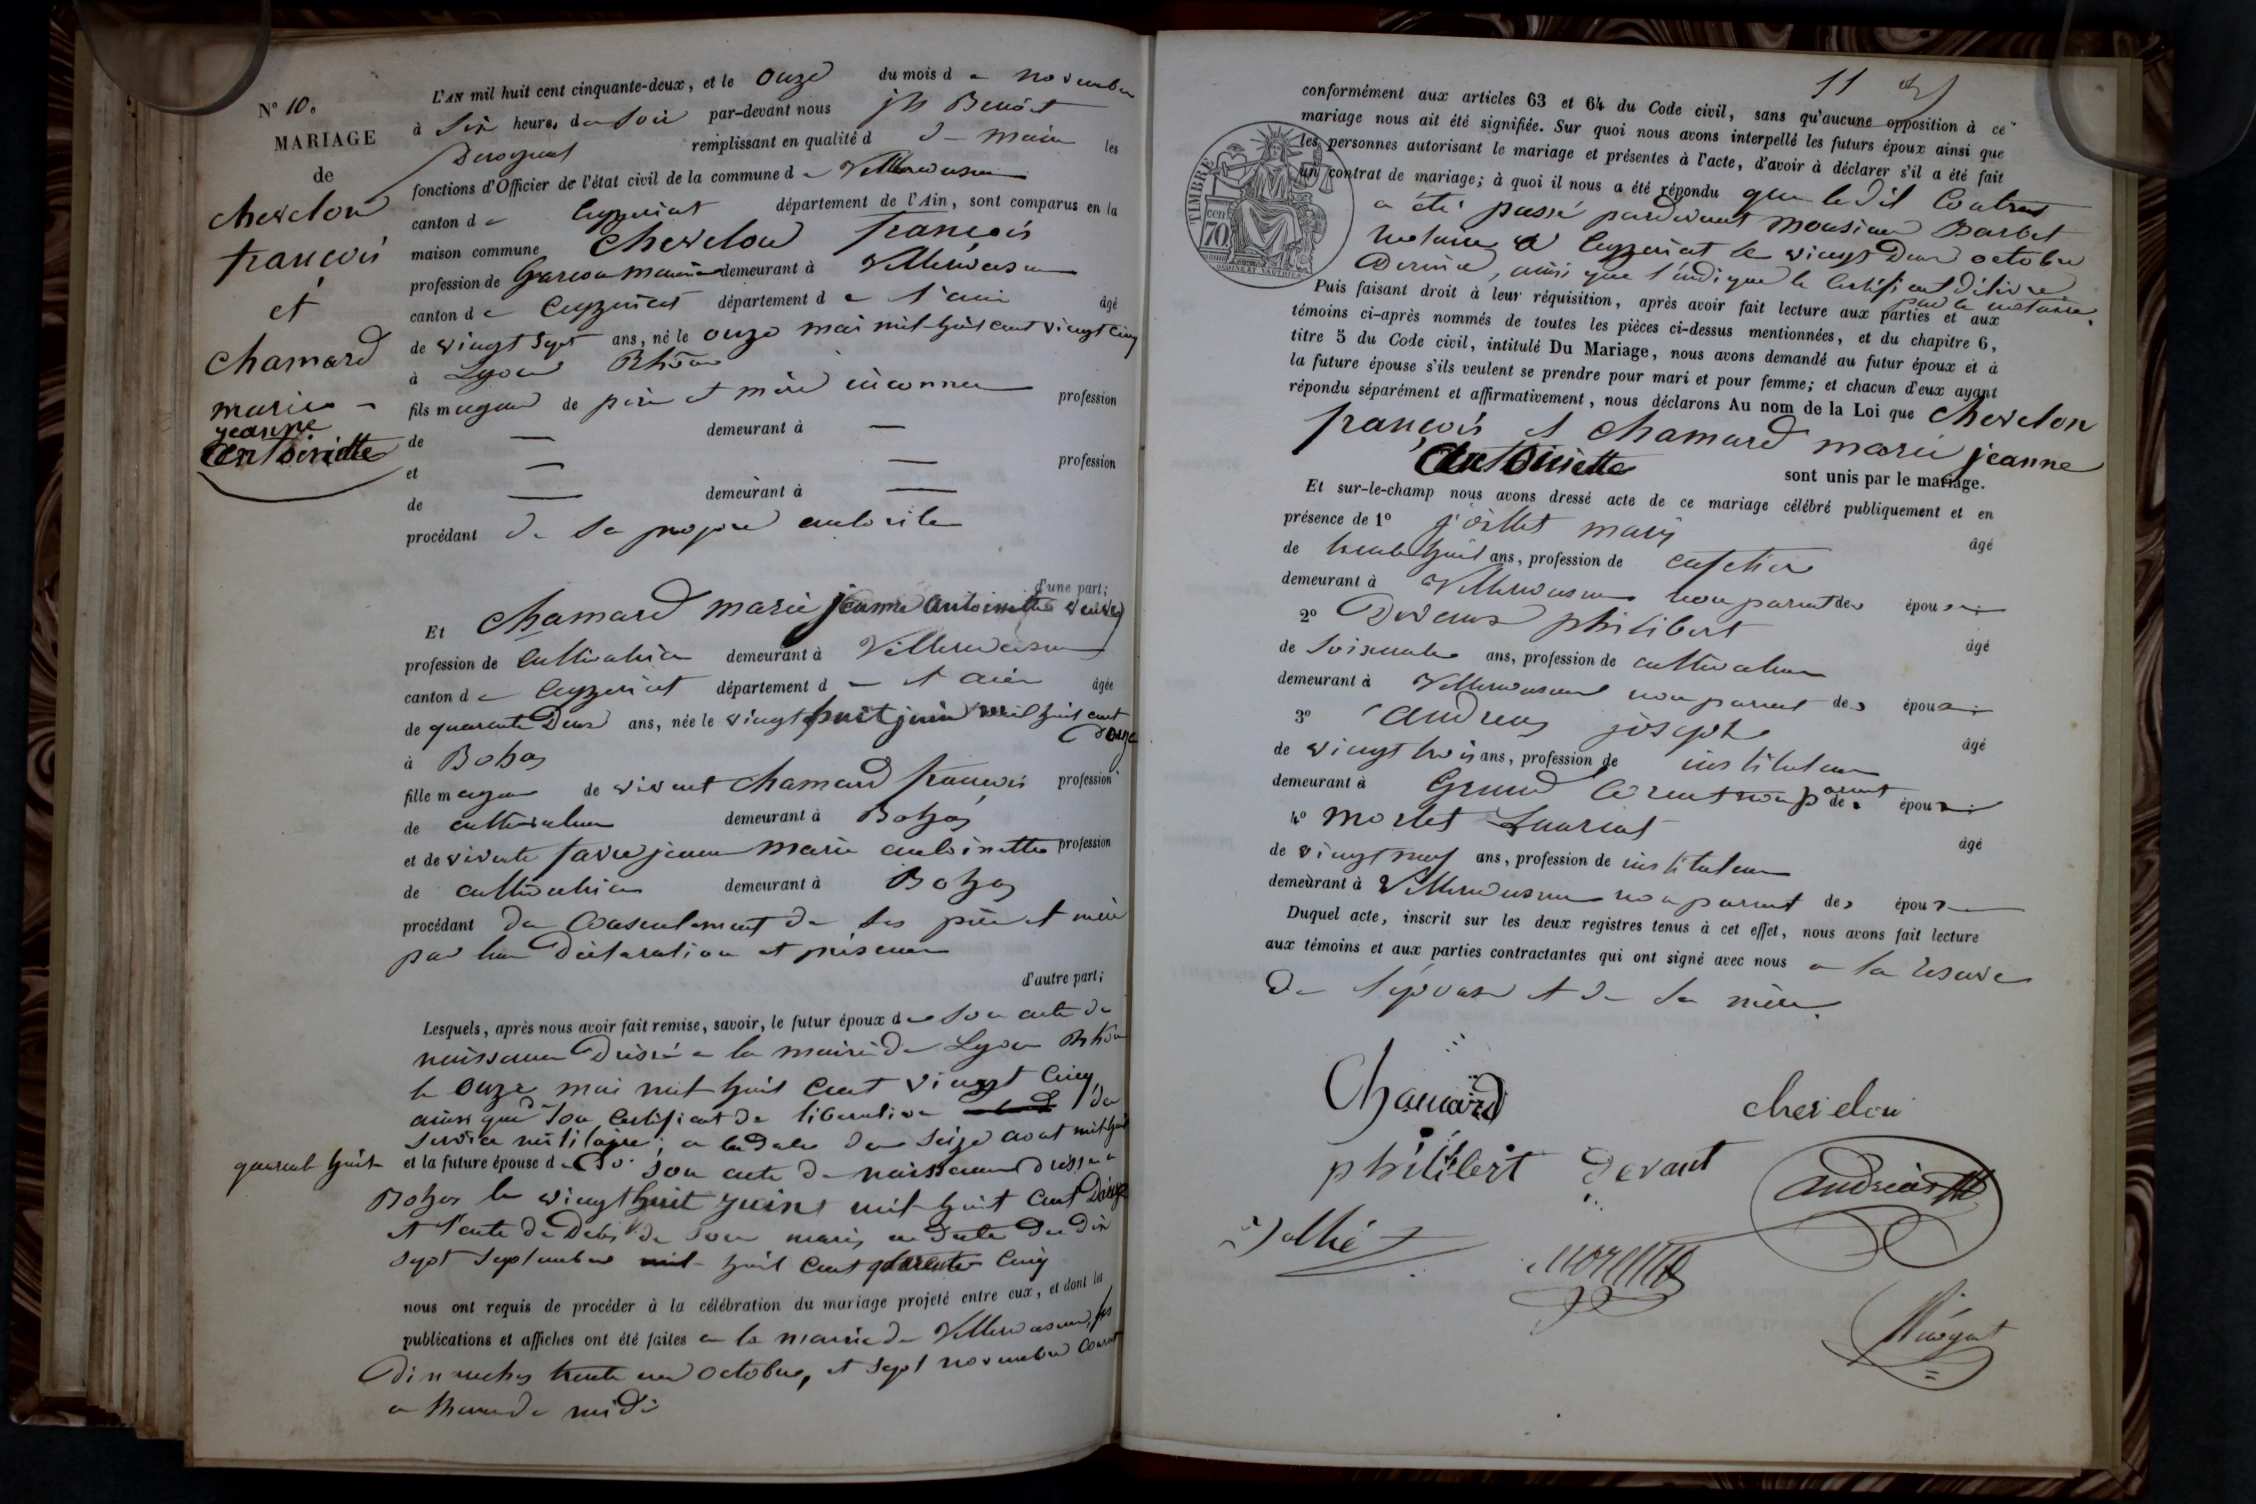 N° 10.
MARIAGE
de
chevelon
françois
et
chamard
marie
jeanne
antoinette
L'AN mil huit cent cinquante-deux, et le onze du mois d e novembre
à six heures du soir par-devant nous Benoît
remplissant en qualité d e maire les
fonctions d'Officier de l'état civil de la commune d e Villereversure
canton d e Ceyzeriat département de l'Ain, sont comparus en la
maison commune chevelon françois
profession de garçon demeurant à Villereversure
canton d e Ceyzeriat département d e l'ain âgé
de vingt sept ans, né le onze mai mil huit cent vingt cinq
à Lyon Rhône
fils majeur de père et mère inconnu profession
de — demeurant à —
et — — profession
de — demeurant à —
procédant de sa propre autorité
d'une part;
Et chamard marie jeanne antoinette veuve
profession de cultivatrice demeurant à Villereversure
canton d e Ceyzeriat département d e l'ain âgée
de quarante deux ans, née le vingt huit juin mil huit cent
à Bohas
fille majeure de vivant chamard françois profession
de cultivateur demeurant à Bohas
et de vivente favre jeanne marie antoinette profession
de cultivatrice demeurant à Bohas
procédant du consentement de ses père et mère
par leur déclaration et présence
d'autre part;
Lesquels, après nous avoir fait remise, savoir, le futur époux d e son acte de
naissance dréssé a la mairie de Lyon Rhône
le onze mai mil huit cent vingt cinq
ainsi que de son certificat de liberation du
service militaire; a la date du seize aout mil huit
quarante huit
et la future épouse d e son acte de naissance dressé a
Bohas le vingt huit juin mil huit cent
et l'acte de décès de son mari en date du dix
sept septembre mil huit cent quarante cinq
nous ont requis de procéder à la célébration du mariage projeté entre eux, et dont les
publications et affiches ont été faites a la mairie de Villereversure, les
dimenches trente un octobre, et sept novembre courant
a l'heure de midi
11
conformément aux articles 63 et 64 du Code civil, sans qu'aucune opposition à ce
mariage nous ait été signifiée. Sur quoi nous avons interpellé les futurs époux ainsi que
les personnes autorisant le mariage et présentes à l'acte, d'avoir à déclarer s'il a été fait
un contrat de mariage; à quoi il nous a été répondu que le dit contrat
a été passé pardevant monsieur Barbet
notaire a Ceyzeriat le vingt deux octobre
dernier, ainsi que l'indique le certificat délivré
par le notaire.
TIMBRE
70 cen
Puis faisant droit à leur réquisition, après avoir fait lecture aux parties et aux
témoins ci-après nommés de toutes les pièces ci-dessus mentionnées, et du chapitre 6,
titre 5 du Code civil, intitulé Du Mariage, nous avons demandé au futur époux et à
la future épouse s'ils veulent se prendre pour mari et pour femme; et chacun d'eux ayant
répondu séparément et affirmativement, nous déclarons Au nom de la Loi que chevelon
françois et chamard marie jeanne
antoinette sont unis par le mariage.
Et sur-le-champ nous avons dressé acte de ce mariage célébré publiquement et en
présence de 1° âgé
de trente huit ans, profession de cafetier
demeurant à Villereversure non parent des époux
2° Devaux philibert âgé
de soixante ans, profession de cultivateur
demeurant à Villereversure non parent des époux
3° andreas joseph âgé
de vingt trois ans, profession de instituteur
demeurant à Grand Corent non parent des époux
4° morlet Laurent âgé
de vingt neuf ans, profession de instituteur
demeurant à Villereversure non parent des époux
Duquel acte, inscrit sur les deux registres tenus à cet effet, nous avons fait lecture
aux témoins et aux parties contractantes qui ont signé avec nous a la reserve
de l'épouse et de sa mère.
Chamard
chevelon
philibert devaut
andréas